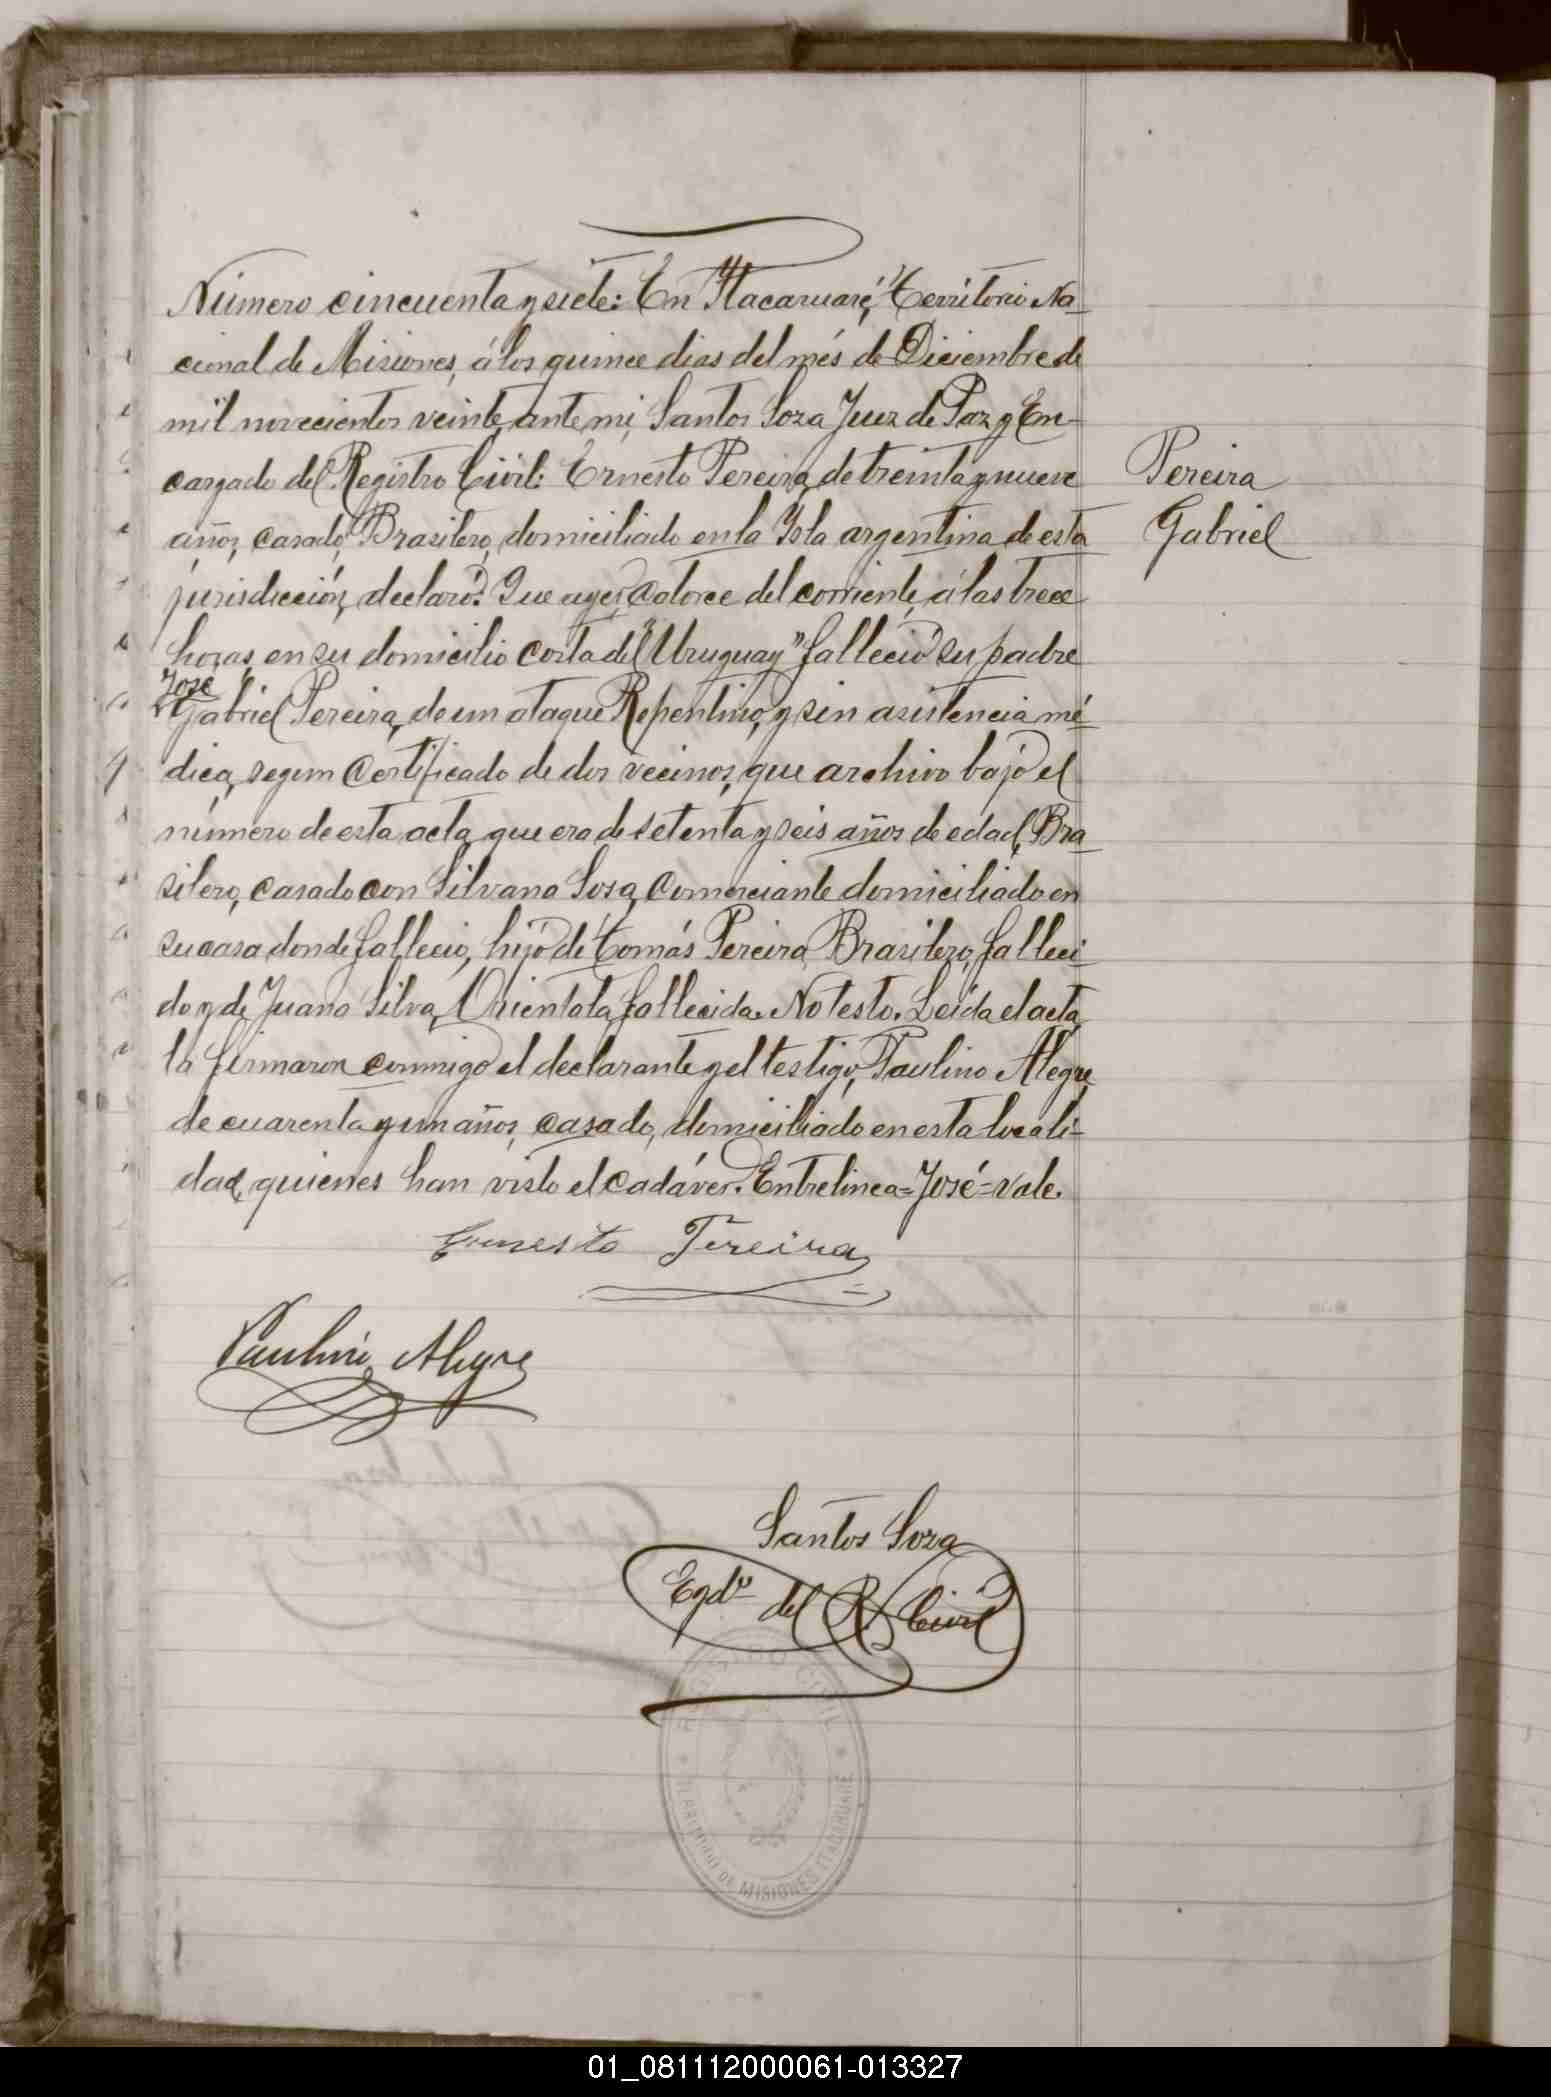 Número cincuenta y siete: En "Itacaruaré," Territorio Na-
cional de Misiones, á los quince dias del més de Diciembre de
mil novecientos veinte, ante mi, Santos Soza Juez de Paz y En-
cargado del Registro Civil: Ernesto Pereira, de treinta y nueve
años, casado, Brasilero, domiciliado en la Isla argentina de esta
jurisdicción, declaró: Que ayer, catorce del corriente, á las trece
horas, en su domicilio costa del "Uruguay" falleció su padre
José
Gabriel Pereira, de un ataque Repentino, y sin asistencia mé-
dica, segun Certificado de dos vecinos, que archivo bajo el
número de esta acta, que era de setenta y seis años de edad, Bra-
silero, casado con Silvana Sosa, Comerciante domiciliado en
su casa donde falleció, hijo de Tomás Pereira, Brasilero, falleci-
do y de Juana Silva, Orientala, fallecida. No testo. Leida el acta,
la firmaron conmigo el declarante y el testigo, Paulino Alegre,
de cuarenta y un años, casado, domiciliado en esta locali-
dad, quienes han visto el cadáver. Entrelinea=José=Vale.
Pereira
Gabriel
Ernesto Pereira
Paulino Alegre
Santos Soza
Egdo del R. Civil
REGISTRO CIVIL
MISIONES ITACARUARE
01_081112000061-013327